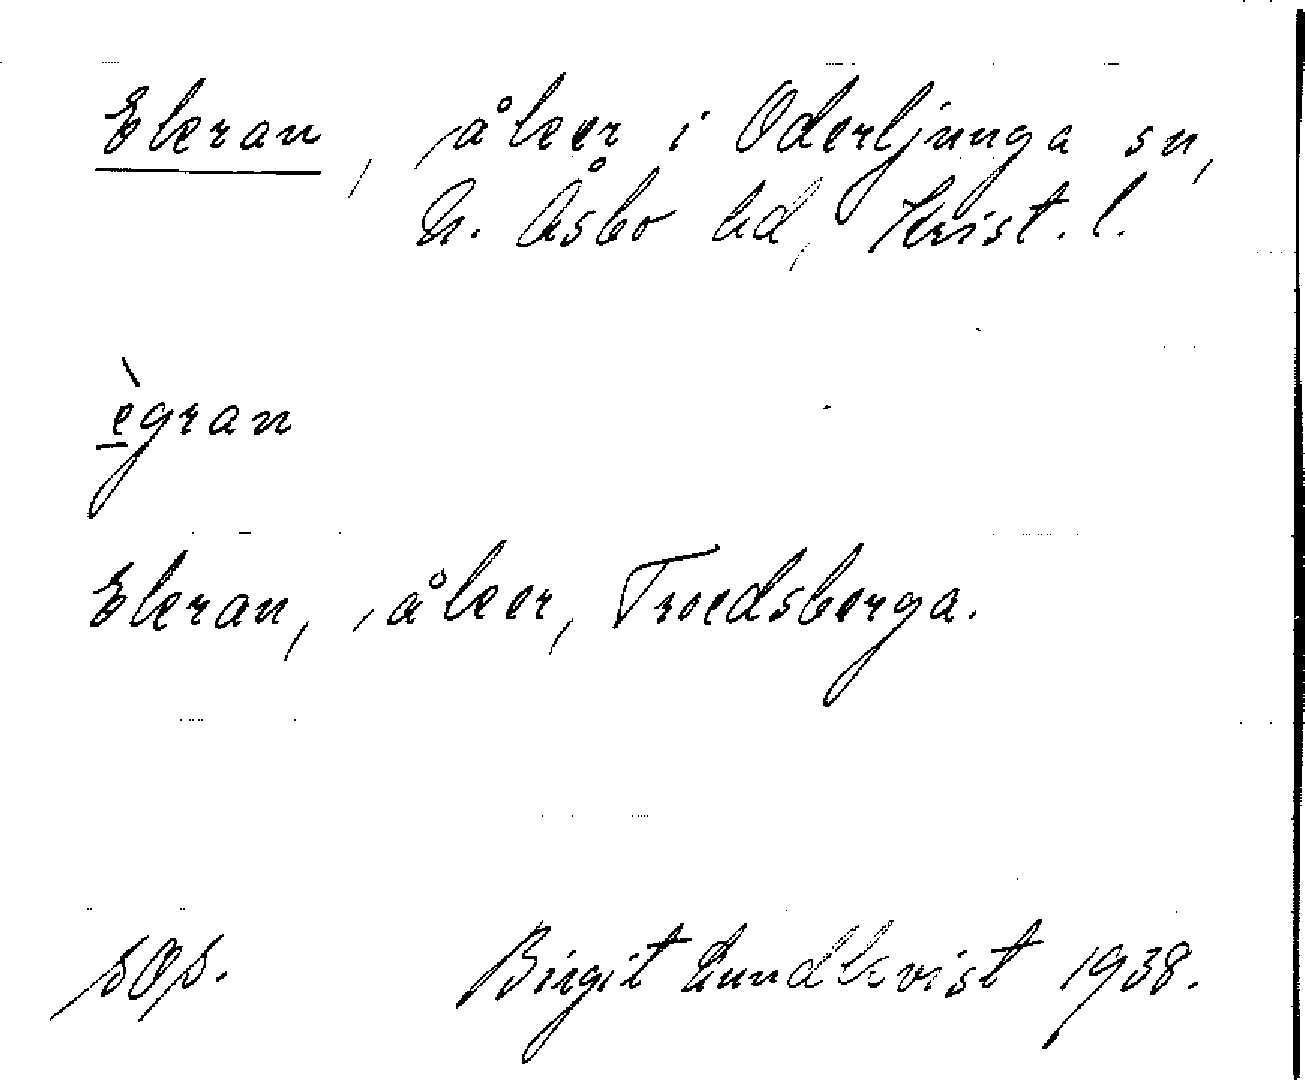 Ekran, åker i Oderljunga sn,
N. Åsbo hd, Krist. l.
ègran
Ekran, åker, Troedsberga.
Birgit Lundkvist 1938.